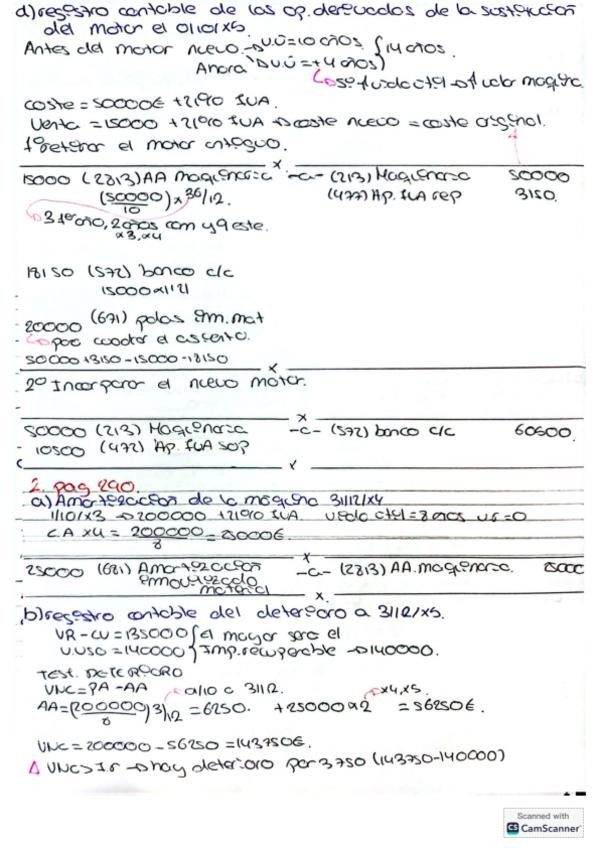 d) registro contable de las op. derivadas de la sustitución
del motor el 01/01/x5.
Antes del motor nuevo → V.U = 10 años { 14 años.
Ahora V.U = +4 años)
coste = 50000€ + 21% IVA.
Venta = 15000 + 21% IVA → coste nuevo = coste original.
1º retirar el motor antiguo.
x
15000 (2813) AA Maquinaria -a- (213) Maquinaria 50000
(50000/10) x 36/12. (477) Hp. IVA rep 3150.
→ 3 1er año, 2 años com y 9 este.
x3, x4
18150 (572) banco c/c
15000 x 1'21
20000 (671) pdas Inm. mat
→ por cuadrar el asiento.
50000 + 3150 - 15000 - 18150
x
2º Incorporar el nuevo motor.
x
50000 (213) Maquinaria -a- (572) banco c/c 60500.
10500 (472) Hp. IVA SOP
x
2. pag 290.
a) Amortización de la máquina 31/12/x4
1/10/x3 → 200000 + 21% IVA. vida útil = 8 años vr = 0
C.A x4 = 200000/8 = 25000€
x
25000 (681) Amortización inmovilizado material -a- (2813) AA. maquinaria. 25000
x
b) registro contable del deterioro a 31/12/x5.
VR - CV = 135000 { el mayor será el
V. USO = 140000 { Imp. recuperable → 140000.
TEST. DETERIORO
VNC = PA - AA → 1/10 a 31/12. x4, x5.
AA = (200000/8) 3/12 = 6250. + 25000 x 2 = 56250€.
VNC = 200000 - 56250 = 143750€.
Δ VNC > I.r → hay deterioro por 3750 (143750 - 140000)
Scanned with
CS CamScanner